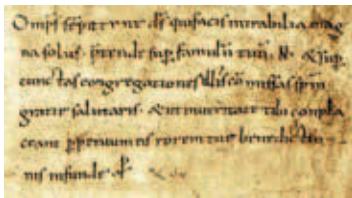 Omps sempiterne ds qui facis mirabilia mag
na solus. ptende sup famulu tuu. N. & sup
cunctas congregationes illi cō missas spm
gratie salutaris. & ut in ueritate tibi compla
ceant perpetuum eis rorem tue benedictio
nis infunde. p